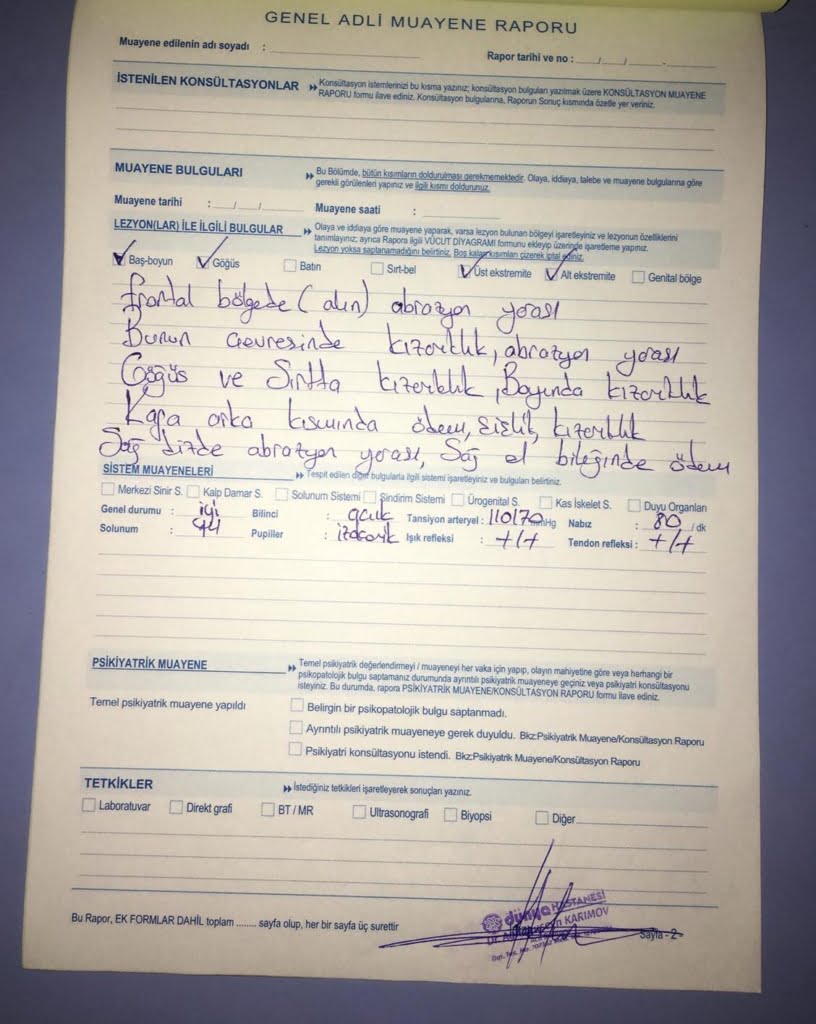 GENEL ADLİ MUAYENE RAPORU
Muayene edilenin adı soyadı :
Rapor tarihi ve no : / / -
İSTENİLEN KONSÜLTASYONLAR
Konsültasyon istemlerinizi bu kısma yazınız; konsültasyon bulguları yazılmak üzere KONSÜLTASYON MUAYENE
RAPORU formu ilave ediniz. Konsültasyon bulgularına, Raporun Sonuç kısmında özetle yer veriniz.
MUAYENE BULGULARI
Bu Bölümde, bütün kısımların doldurulması gerekmemektedir. Olaya, iddiaya, talebe ve muayene bulgularına göre
gerekli görülenleri yapınız ve ilgili kısmı doldurunuz.
Muayene tarihi : / / Muayene saati :
LEZYON(LAR) İLE İLGİLİ BULGULAR
Olaya ve iddiaya göre muayene yaparak, varsa lezyon bulunan bölgeyi işaretleyiniz ve lezyonun özelliklerini
tanımlayınız; ayrıca Rapora ilgili VÜCUT DİYAGRAMI formunu ekleyip üzerinde işaretleme yapınız.
Lezyon yoksa saptanamadığını belirtiniz. Boş kalan kısımları çizerek iptal ediniz.
Baş-boyun Göğüs Batın Sırt-bel Üst ekstremite Alt ekstremite Genital bölge
frontal bölgede (alın) abrazyon yarası
Burun çevresinde kızarıklık, abrazyon yarası
Göğüs ve Sırtta kızarıklık, Boyunda kızarıklık
Kafa arka kısmında ödem, şişlik, kızarıklık
Sağ dizde abrazyon yarası, Sağ el bileğinde ödem
SİSTEM MUAYENELERİ
Tespit edilen diğer bulgularla ilgili sistemi işaretleyiniz ve bulguları belirtiniz.
Merkezi Sinir S. Kalp Damar S. Solunum Sistemi Sindirim Sistemi Ürogenital S. Kas İskelet S. Duyu Organları
Genel durumu : iyi Bilinci : açık Tansiyon arteryel : 110/70 mmHg Nabız : 80 / dk
Solunum : Pupiller : izokorik Işık refleksi : +/+ Tendon refleksi : +/+
PSİKİYATRİK MUAYENE
Temel psikiyatrik değerlendirmeyi / muayeneyi her vaka için yapıp, olayın mahiyetine göre veya herhangi bir
psikopatolojik bulgu saptamanız durumunda ayrıntılı psikiyatrik muayeneye geçiniz veya psikiyatri konsültasyonu
isteyiniz. Bu durumda, rapora PSİKİYATRİK MUAYENE/KONSÜLTASYON RAPORU formu ilave ediniz.
Temel psikiyatrik muayene yapıldı
Belirgin bir psikopatolojik bulgu saptanmadı.
Ayrıntılı psikiyatrik muayeneye gerek duyuldu. Bkz:Psikiyatrik Muayene/Konsültasyon Raporu
Psikiyatri konsültasyonu istendi. Bkz:Psikiyatrik Muayene/Konsültasyon Raporu
TETKİKLER
İstediğiniz tetkikleri işaretleyerek sonuçları yazınız.
Laboratuvar Direkt grafi BT / MR Ultrasonografi Biyopsi Diğer
dünya HASTANESİ
KARIMOV
Bu Rapor, EK FORMLAR DAHİL toplam ........ sayfa olup, her bir sayfa üç surettir
Sayfa - 2